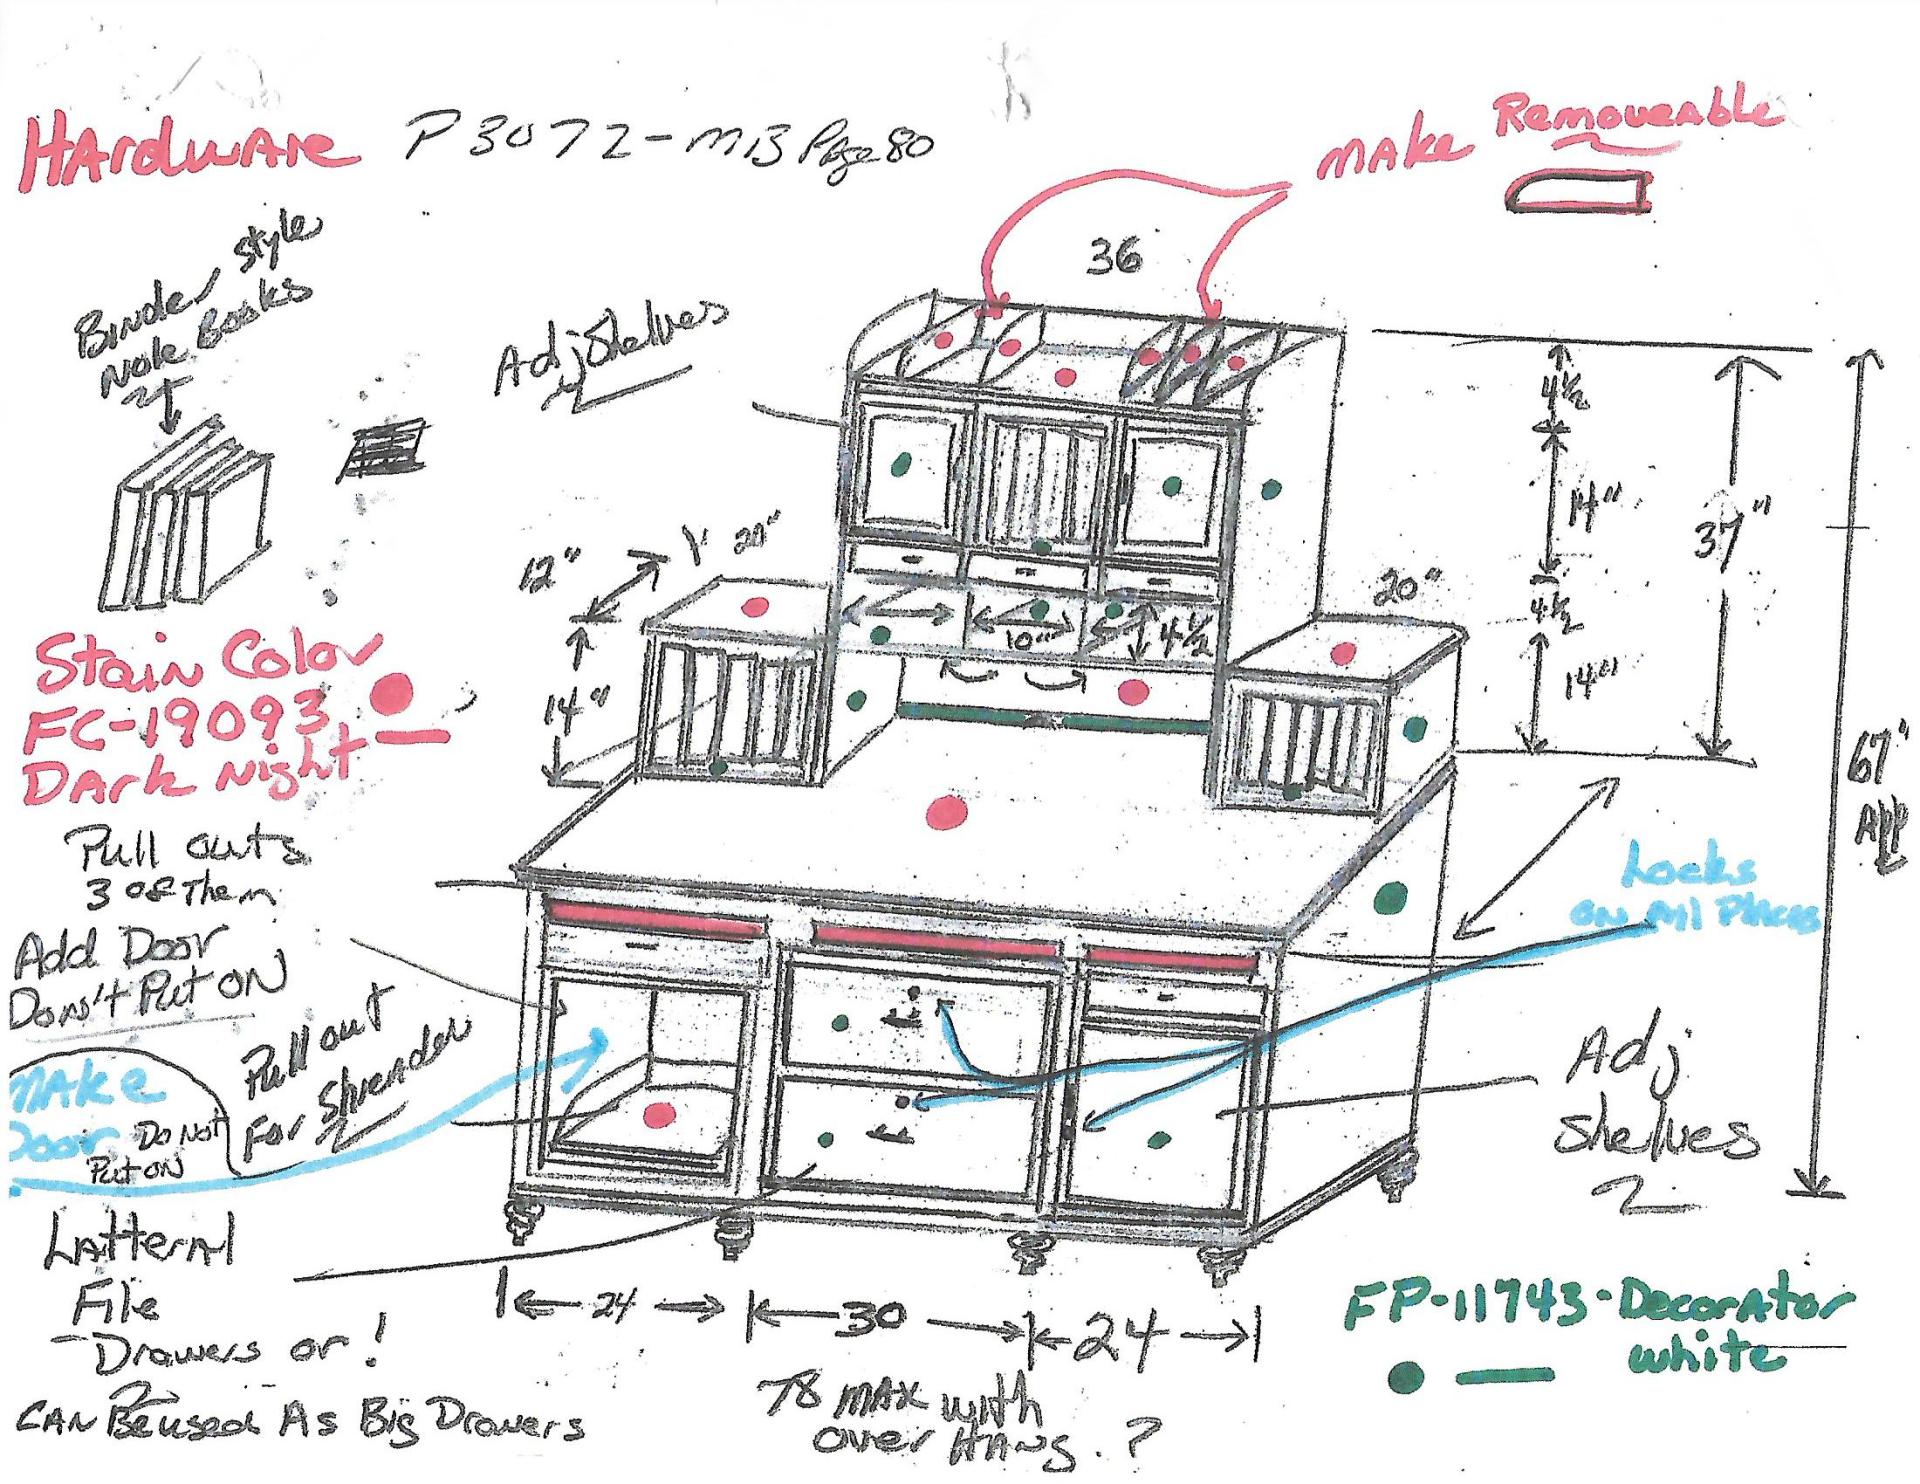 HArdwAre P3072-MB Page 80
MAke Removeable
36
Binder style
Note Books
Adj Shelves
2
4 1/2
14"
37"
4 1/2
14"
67"
App
12"
20"
20"
14"
10"
4 1/2
Stain Color
FC-19093
DArk Night
Pull outs
3 of Them
Add Door
Don't Put ON
Pull out
For Shreader
MAke
Door Do Not
Put ON
Locks
on All Places
Adj
Shelves
2
LAtterAl
File
Drawers or !
2
CAN Be used As Big Drawers
24
30
24
78 MAX with
over HANG.?
FP-11743-DecorAtor
white